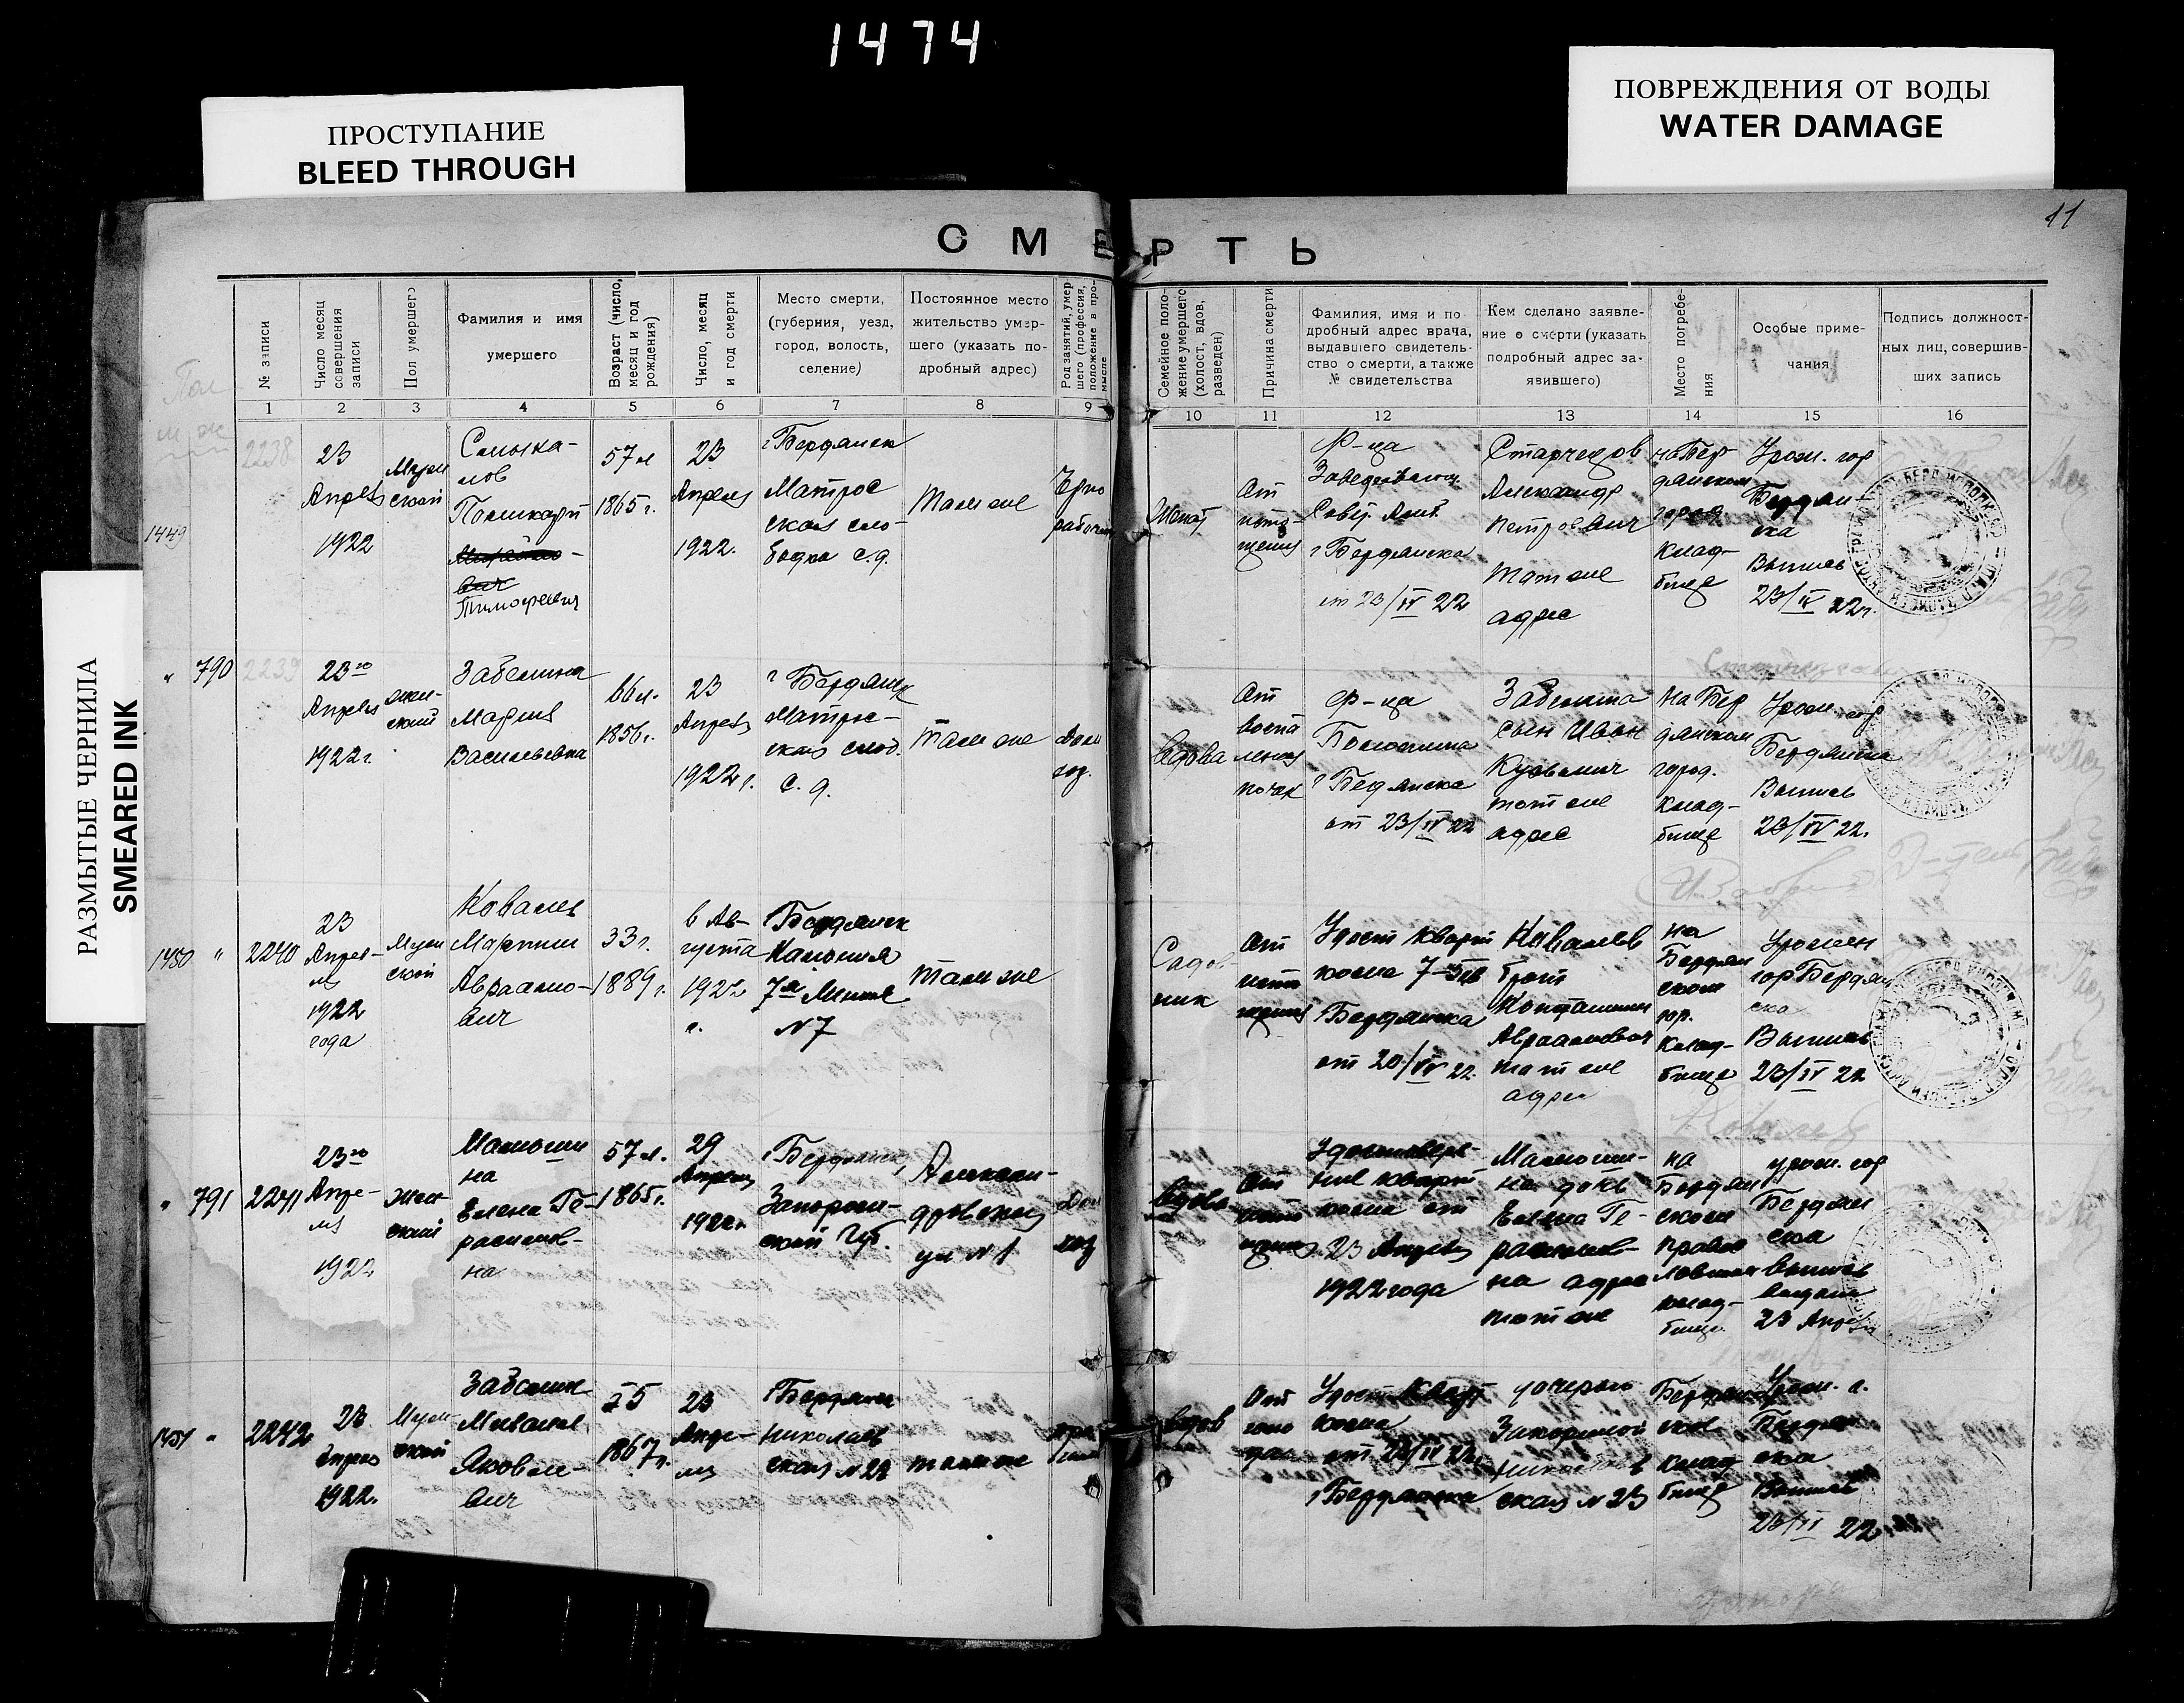 1474
ПРОСТУПАНИЕ
BLEED THROUGH
ПОВРЕЖДЕНИЯ ОТ ВОДЫ
WATER DAMAGE
РАЗМЫТЫЕ ЧЕРНИЛА
SMEARED INK
11
СМЕРТЬ
№ записи
Число месяц
совершения
записи
Пол умершего
Фамилия и имя
умершего
Возраст (число,
месяц и год
рождения)
Число, месяц
и год смерти
Место смерти,
(губерния, уезд,
город, волость,
селение)
Постоянное место
жительство умер-
шего (указать по-
дробный адрес)
Род занятий, умер
шего (профессия,
положение в про-
мысле
Семейное поло-
жение умершего
(холост, вдов,
разведен)
Причина смерти
Фамилия, имя и по
дробный адрес врача,
выдавшего свидетель-
ство о смерти, а также
№ свидетельства
Кем сделано заявле-
ние о смерти (указать
подробный адрес за-
явившего)
Место погребе-
ния
Особые приме-
чания
Подпись должност-
ных лиц, совершив-
ших запись
1 2 3 4 5 6 7 8 9 10 11 12 13 14 15 16
1449
2238
23
Апреля
1922
Муж
ской
Поликарп
Тимофеевич
57 л
1865 г.
23
Апреля
1922.
г Бердянск
Матрос
ская сло-
бодка с.д.
Там же
Черно
рабочий
женат
От
исто-
щения
Ф-ца
Завед
Совет.
г Бердянска
от 23/IV 22
Александр
Петрович
тот же
адрес
на Бер
дянском
город
клад-
бище
Урож. гор
Бердян-
ска
Выпись
23/IV 22 г.
" 790
2239
23го
Апреля
1922 г.
жен-
ский
Забелина
Мария
Васильевна
66 л.
1856 г.
23
Апреля
1922 г.
г Бердянск
Матрос-
ская слоб.
с. д.
Там же
Дом
хоз.
Вдова
От
воспа
ления
почек
Ф-ца
г Бедянска
от 23/IV 22
Забелина
сын Иван
тот же
адрес
На Бер
дянском
город.
клад-
бище
Урож. гор
Бердянска
Выпись
23/IV 22.
1450 "
2240
23
Апрел-
я
1922
года
Муж
ской
Ковалев
Мартын
Авраамо-
вич
33 г.
1889 г.
в Ав-
густа
1922
г.
г Бердянск
Колония
7я Линия
№ 7
Там же
Садов
ник
От
исто
щения
Удост кварт
кома 7-го
г Бердянска
от 20/IV 22.
Ковалев
брат
Авраамович
тот же
адрес
на
Бердян
ском
гор.
клад-
бище
Урожен
гор Бердян
ска
Выпись
23/IV 22
Ковалев
" 791
2241
23го
Апре-
ля
1922
Жен-
ский
Малюши
на
Елена Ге-
расимов-
на
57 л.
1865 г.
29
Апреля
1922 г.
г Бердянск,
Запорож-
ской Губ.
Алексан-
дровская
ул № 1
Дом
хоз
Вдова
От
исто
щения
Удостовере-
ние кварт
кома от
23 Апреля
1922 года
Малюши-
на дочь
Елена Ге-
расимов-
на адрес
тот же
на
Бердян
ском
право
славном
клад-
бище
урож. гор
Бердян
ска
выпись
выдана
23 Апреля
1451 "
2242
23
Апреля
1922.
Муж-
ской
Забелин
Яковле-
вич
55
1867 г.
23
Апре-
ля
г Бердянск
Николаев
ская № 23
там же
вдов
От
Удост. Кварт
кома
от 23/IV 22
г Бердянска
дочерью
ская № 23
Бердян
ское
клад
бище
Урож. г.
Бердян
ска
Выпись
23/IV 22